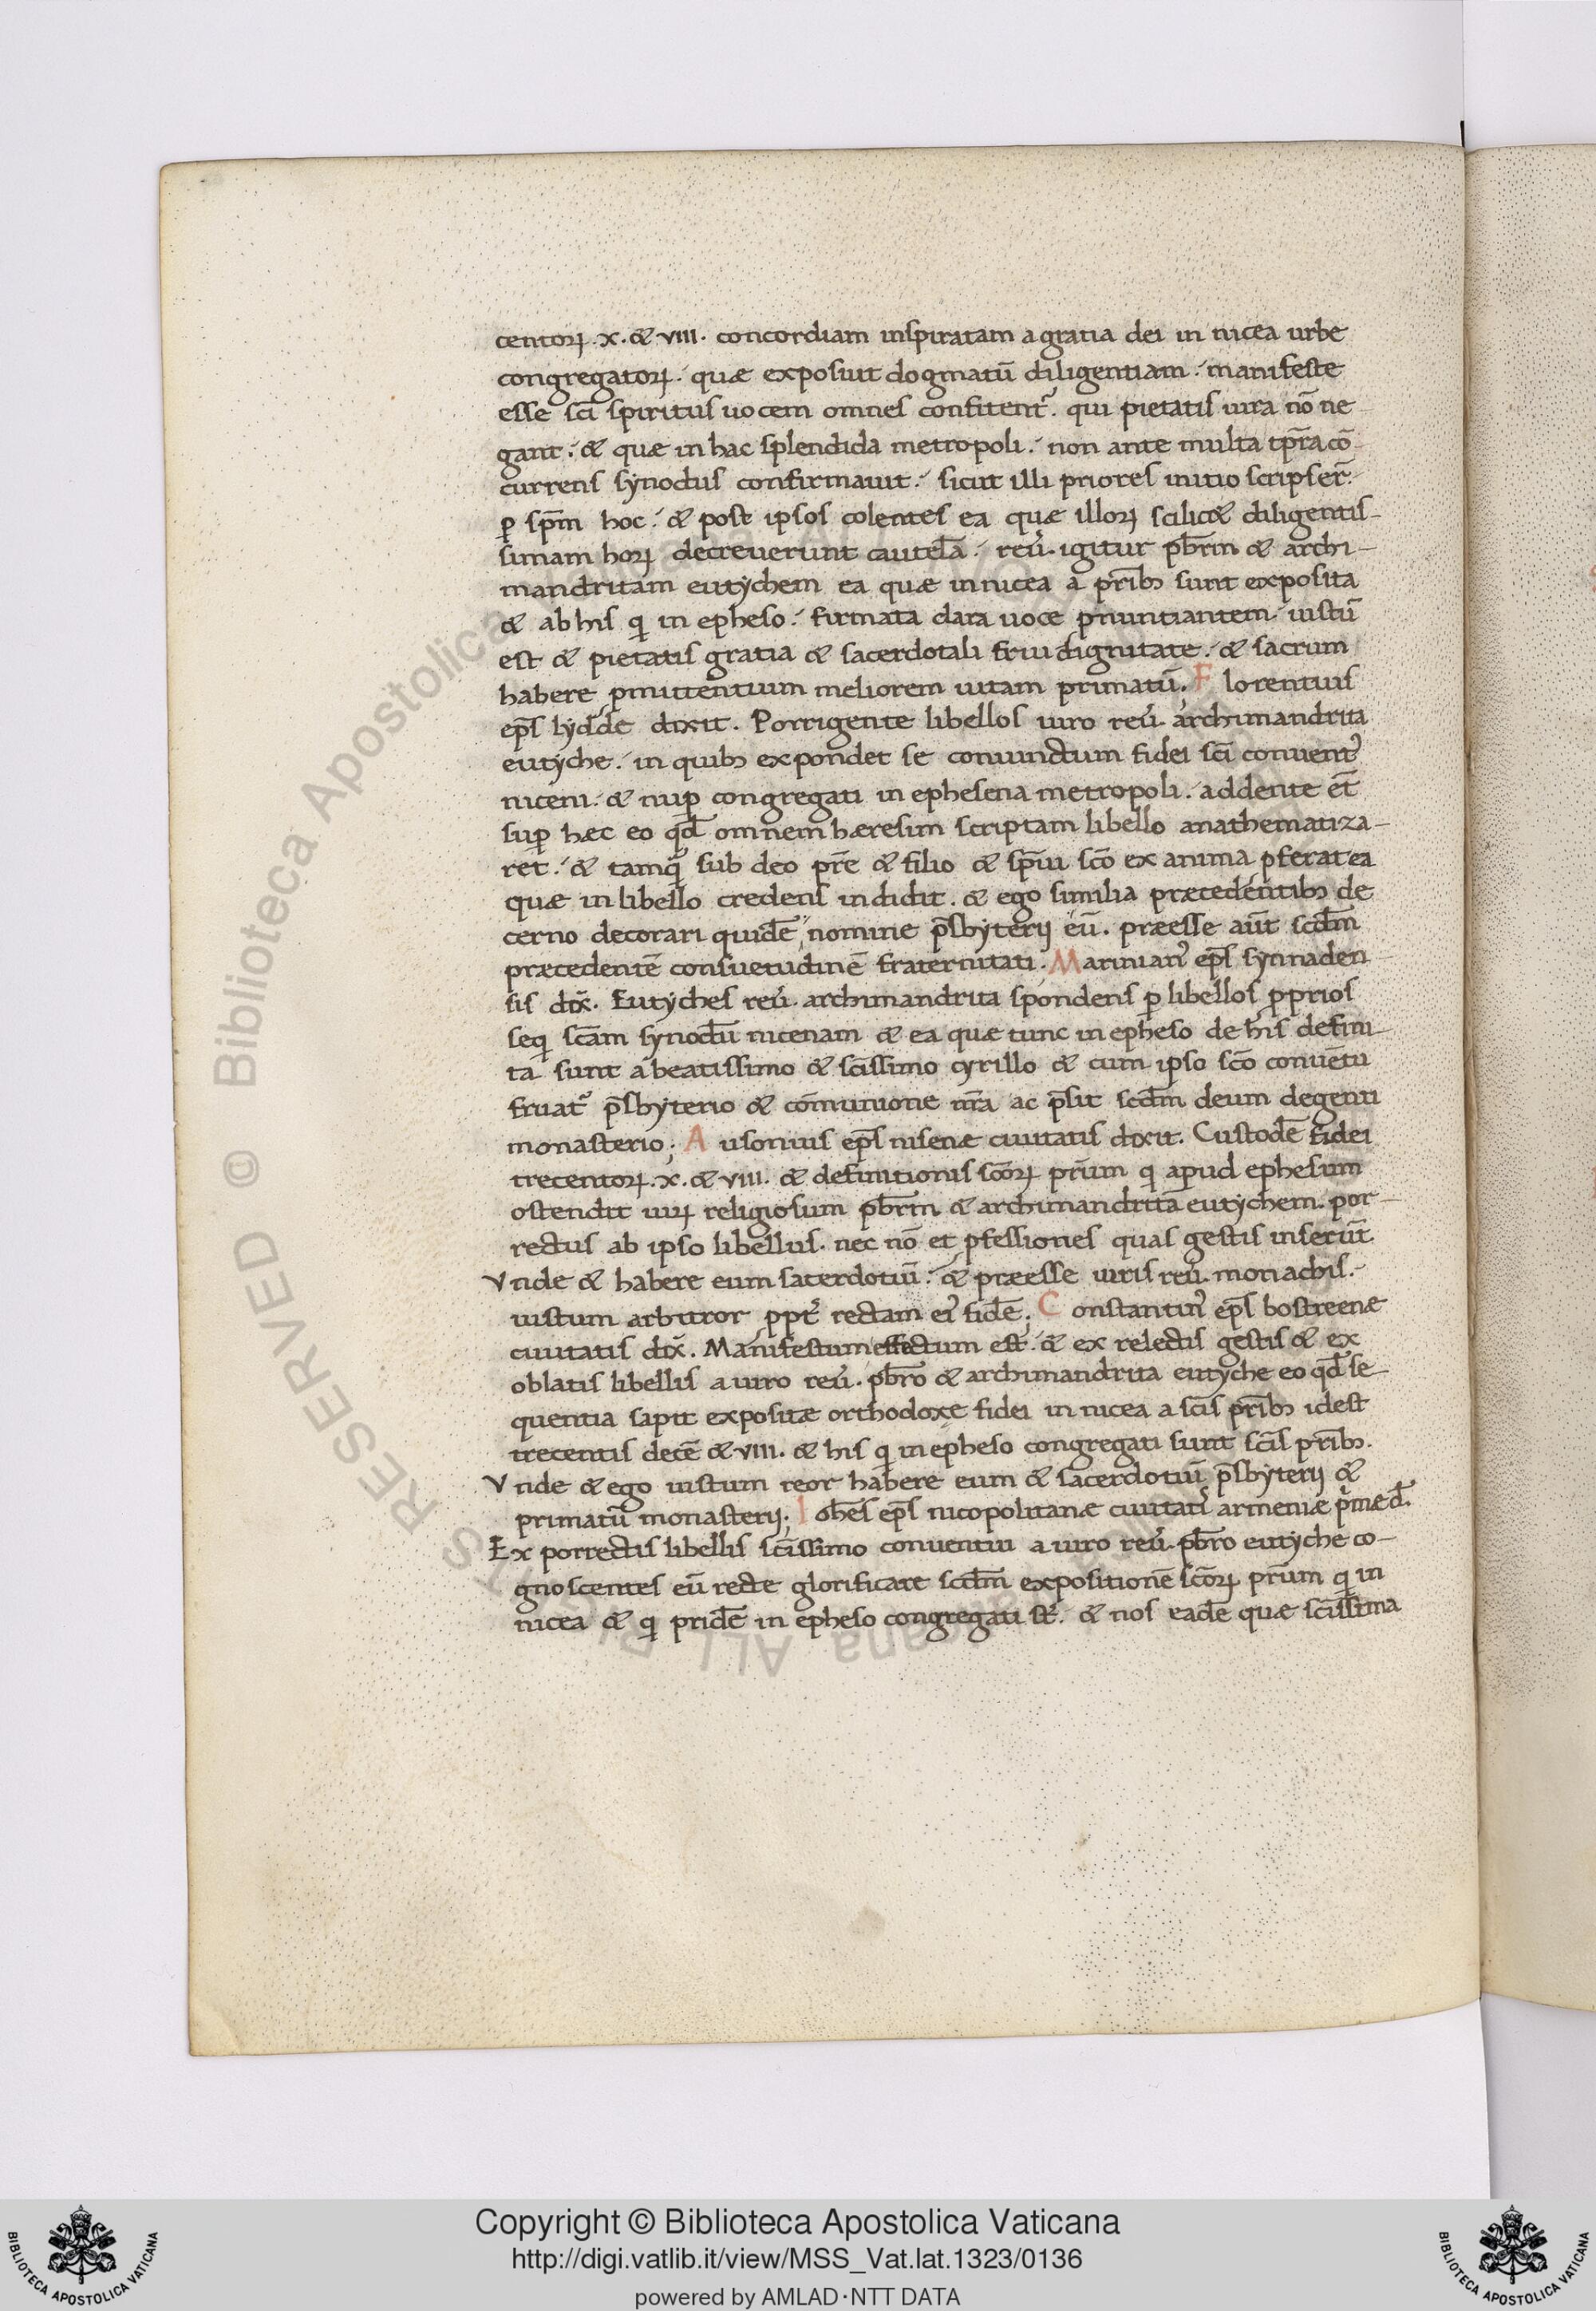 centoꝝ .x. & viii. concordiam inspiratam a gratia dei in nicea urbe
congregatoꝝ. quæ exposuit dogmatū diligentiam. manifeste
esse sci̅ spiritus uocem omnes confitent᷑. qui pietatis iura nō ne
gant. & quæ in hac splendida metropoli. non ante multa tp̅ra cō
currens synodus confirmauit. sicut illi priores initio scripser̅.
ꝑ sp̅m hoc. & post ipsos colentes ea quæ illoꝝ scilic& diligentis-
simam hoꝝ decreuerunt cautelā. reu̅. igitur pb̅rm & archi-
mandritam eutychem ea quæ in nicea a pr̅ib; sunt exposita
& ab his q̣ in epheso. firmata clara uoce ꝓnuntiantem. iustū
est & pietatis gratia & sacerdotali frui dignitate. & sacrum
habere ꝓmittentium meliorem uitam primatū. Florentius
ep̅s lydde dixit. Porrigente libellos uiro reu̅. archimandrita
eutyche. in quib; expondet se coniunctum fidei sci̅ conuent᷑
niceni. & nuꝑ congregati in ephesena metropoli. addente et̅
suꝑ hæc eo qd̅ omnem hæresim scriptam libello anathematiza-
ret. & tamq̅ sub deo pr̅e & filio & sp̅iu sc̅o ex anima ꝓferat ea
quæ in libello credens indidit. & ego similia præcedentib; de
cerno decorari quidē nomine p̅sbyterij eū. præesse aūt scd̅m
præcedentē consuetudinē fraternitati. Marinian᷒ ep̅s synnaden
sis dix̅. Eutyches reu̅. archimandrita spondens ꝑ libellos ꝓprios
seq̣ sc̅am synodū nicenam & ea quæ tunc in epheso de his defini-
ta sunt a beatissimo & sc̅issimo cyrillo & cum ipso sc̅o conuētu
fruat᷑ p̅sbyterio & cōmunione nr̅a ac p̅sit scd̅m deum degenti
monasterio; Ausonius ep̅s nisenæ ciuitatis dixit. Custodē fidei
trecentoꝝ .x. & viii. & definitionis sc̅oꝝ pr̅um q̣ apud ephesum
ostendit uiꝝ religiosum pb̅rm & archimandritā eutychem. por-
rectus ab ipso libellus. nec nō et ꝓfessiones quas gestis inserūt.
Vnde & habere eum sacerdotiū. & præesse uiris reu̅. monachis.
iustum arbitror ꝓpt᷑ rectam ei᷒ fidē; Constantin᷒ ep̅s bostreenæ
ciuitatis dix̅. Manifestum effectum est. & ex relectis gestis & ex
oblatis libellis a uiro reu̅. pb̅ro & archimandrita eutyche eo qd̅ se-
quentia sapit expositæ orthodoxe fidei in nicea a sc̅is pr̅ib; idest
trecentis decē & viii. & his q̣ in epheso congregati sunt sc̅is pr̅ib;.
Vnde & ego iustum reor habere eum & sacerdotiū p̅sbyterij &
primatū monasterij; Ioh̅es ep̅s nicopolitanæ ciuitatis armeniæ primæ d̅.
Ex porrectis libellis sc̅issimo conuentui a uiro reu̅. pb̅ro eutyche co-
gnoscentes eū recte glorificare scd̅m expositionē sc̅oꝝ pr̅um q̣ in
nicea & q̣ pridē in epheso congregati st̅. & nos eadē quæ sc̅issima
Copyright © Biblioteca Apostolica Vaticana
http://digi.vatlib.it/view/MSS_Vat.lat.1323/0136
powered by AMLAD·NTT DATA